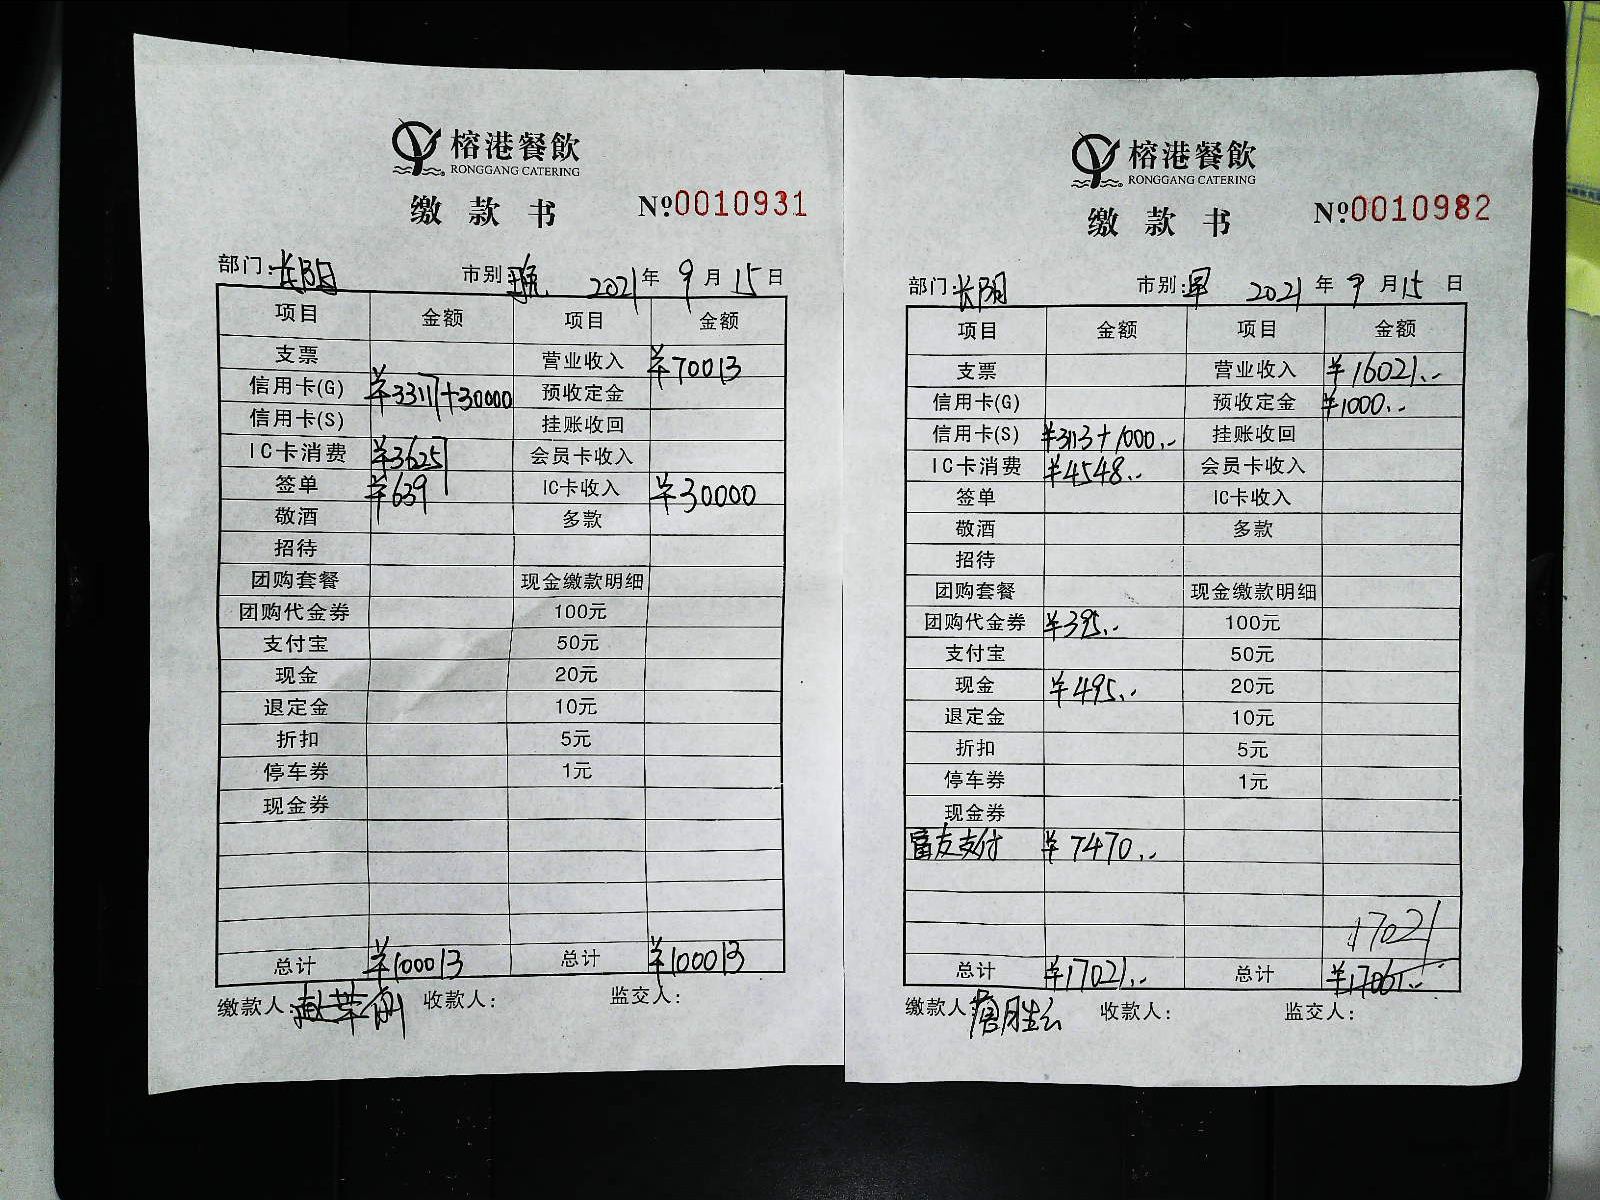 榕港餐飲
RONGGANG CATERING
缴款书 №0010931
部门:长阳 市别 2021年9月15日
项目 金额 项目 金额
支票 营业收入 ¥70013
信用卡(G) ¥33117+30000 预收定金
信用卡(S) 挂账收回
IC卡消费 ¥36257 会员卡收入
签单 ¥639 IC卡收入 ¥30000
敬酒 多款
招待
团购套餐 现金缴款明细
团购代金券 100元
支付宝 50元
现金 20元
退定金 10元
折扣 5元
停车券 1元
现金券
总计 ¥100013 总计 ¥100013
缴款人: 收款人: 监交人:
榕港餐飲
RONGGANG CATERING
缴款书 №0010982
部门:长阳 市别:早 2021年9月15日
项目 金额 项目 金额
支票 营业收入 ¥16021.--
信用卡(G) 预收定金 ¥1000.--
信用卡(S) ¥3113+1000.-- 挂账收回
IC卡消费 ¥4548.-- 会员卡收入
签单 IC卡收入
敬酒 多款
招待
团购套餐 现金缴款明细
团购代金券 ¥395.-- 100元
支付宝 50元
现金 ¥495.-- 20元
退定金 10元
折扣 5元
停车券 1元
现金券
富友支付 ¥7470.--
17021
总计 ¥17021.-- 总计 ¥17061.--
缴款人: 收款人: 监交人: